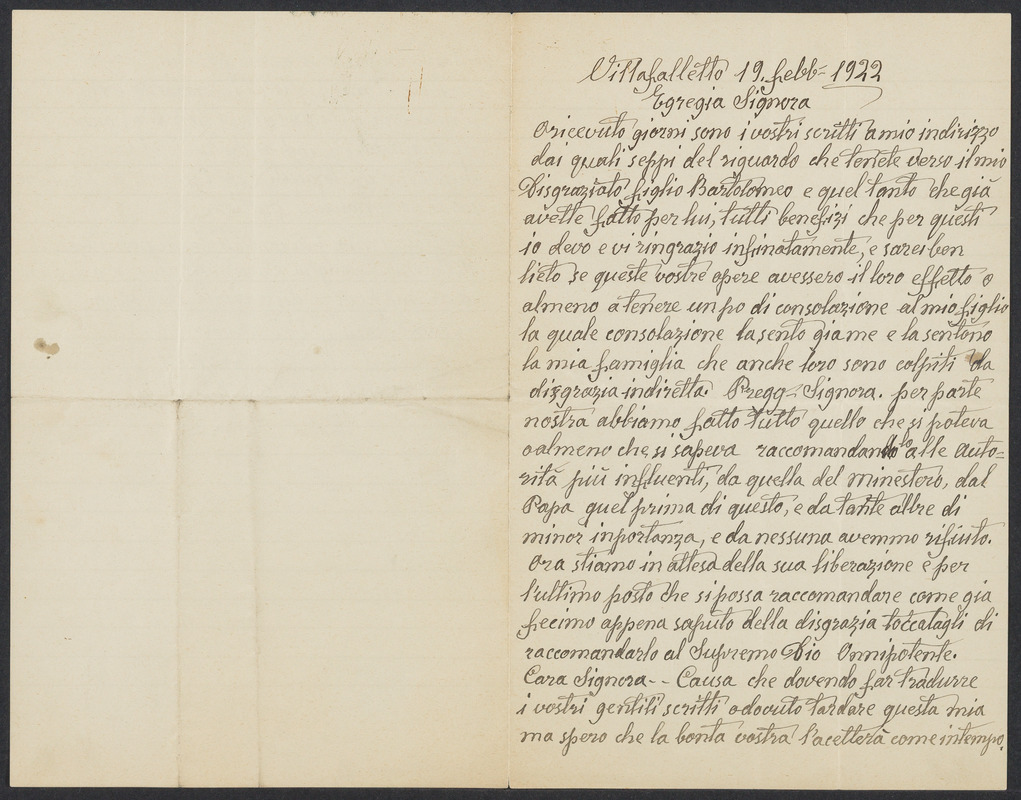 Villafalletto 19. febb- 1922
Egregia Signora
O ricevuto giorni sono i vostri scritti a mio indirizzo
dai quali seppi del riguardo che tenete verso il mio
Disgraziato figlio Bartolomeo e quel tanto che già
avette fatto per lui, tutti benefizi che per questi
io devo e vi ringrazio infinatamente, e sarei ben
lieto se queste vostre opere avessero il loro effetto o
almeno a tenere un po di consolazione al mio figlio
la quale consolazione la sento gia me e la sentono
la mia famiglia che anche loro sono colpiti da
disgrazia indiretta. Pregg- Signora. per parte
nostra abbiamo fatto tutto quello che si poteva
o almeno che si sapeva raccomandandolo alle Auto=
rità più influenti, da quella del minestero, dal
Papa quel prima di questo, e da tante altre di
minor inportanza, e da nessuna avemmo rifiuto.
Ora stiamo in attesa della sua liberazione e per
l'ultimo posto che si possa raccomandare come gia
fecimo appena saputo della disgrazia toccatagli di
raccomandarlo al Supremo Dio Onnipotente.
Cara Signora - - Causa che dovendo far tradurre
i vostri gentili scritti o dovuto tardare questa mia
ma spero che la bonta vostra l'accetterà come in tempo.